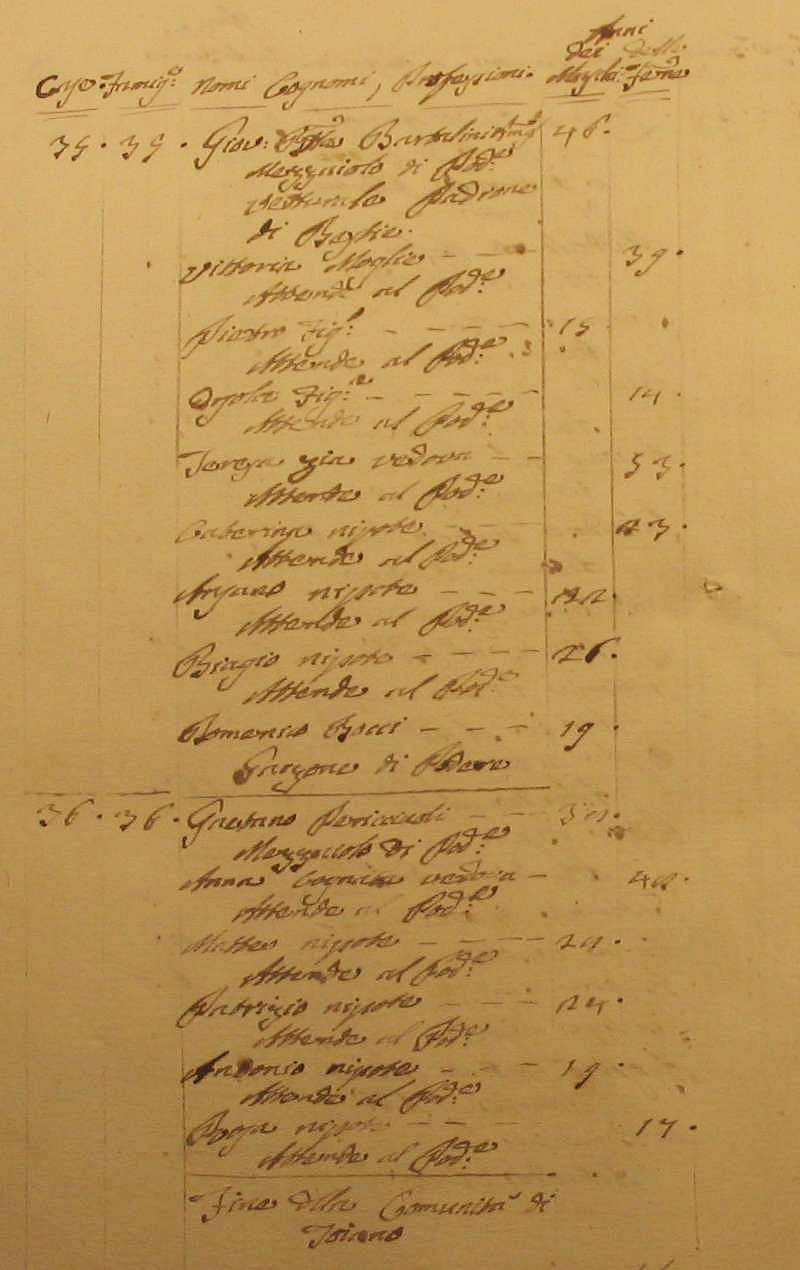 Anni
dei delle
Case. Famig.e Nomi Cognomi, Professioni. Maschi Fem.e
35. 39. Giov: Bartalini 46.
Mezzaiolo di Pod.e
Vetturale Padrone
di Bestie.
Vittoria Moglie - - - 39.
Attende al Pod.e
Pietro Fig.o - - - - 15
Attende al Pod.e
Orsola Fig.a - - - - - 14.
Attende al Pod.e
Teresa zia vedova - - 53.
Attente al Pod.e
Caterina nipote - - - 23.
Attende al Pod.e
Ansano nipote - - -
Attende al Pod.e
Biagio nipote - - - - 26.
Attende al Pod.e
Domenico Bocci - - - 19.
Garzone di Podere
36. 36. Gaetano Periccioli - -
Mezzaiolo di Pod.e
Anna Cognata vedova -
Attende al Pod.e
Matteo nipote - - - -
Attende al Pod.e
Patrizio nipote - - - 24.
Attende al Pod.e
Antonio nipote - - - 19.
Attende al Pod.e
Rosa nipote - - - 17.
Attende al Pod.e
Fine della Comunità di
Toiano